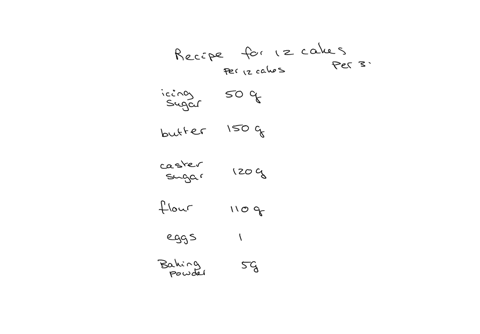 Recipe for 12 cakes
Per 12 cakes Per 3
icing sugar 50 g
butter 150 g
caster sugar 120 g
flour 110 g
eggs 1
Baking powder 5g